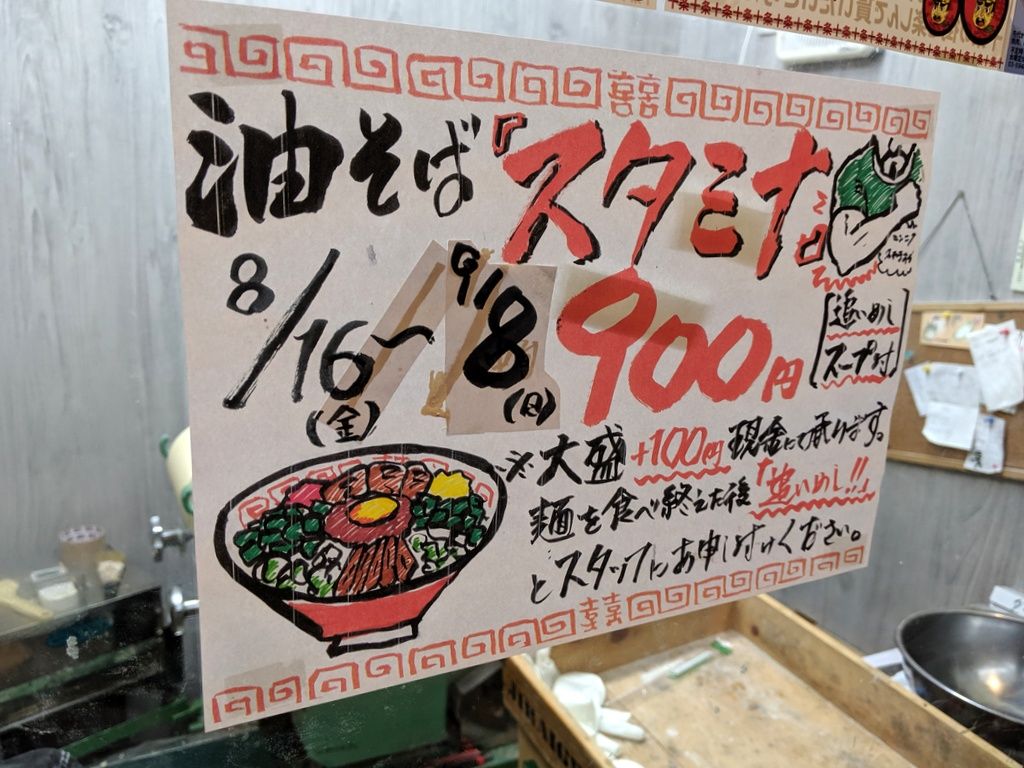 油そば『スタミナ』
8/16〜9/8
(金)
(日)
900円
[追いめし
スープ付]
※大盛+100円 現金にて承ります。
麺を食べ終えた後「追いめし!!」
とスタッフにお申し付けください。